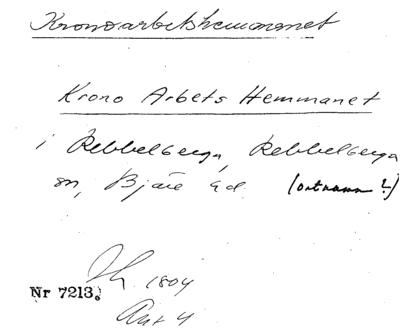 Kronoarbetshemmanet
Krono Arbets Hemmanet
i Rebbelberga, Rebbelberga
sn, Bjäre hd. (ortnamn?)
1804
Nr 7213.